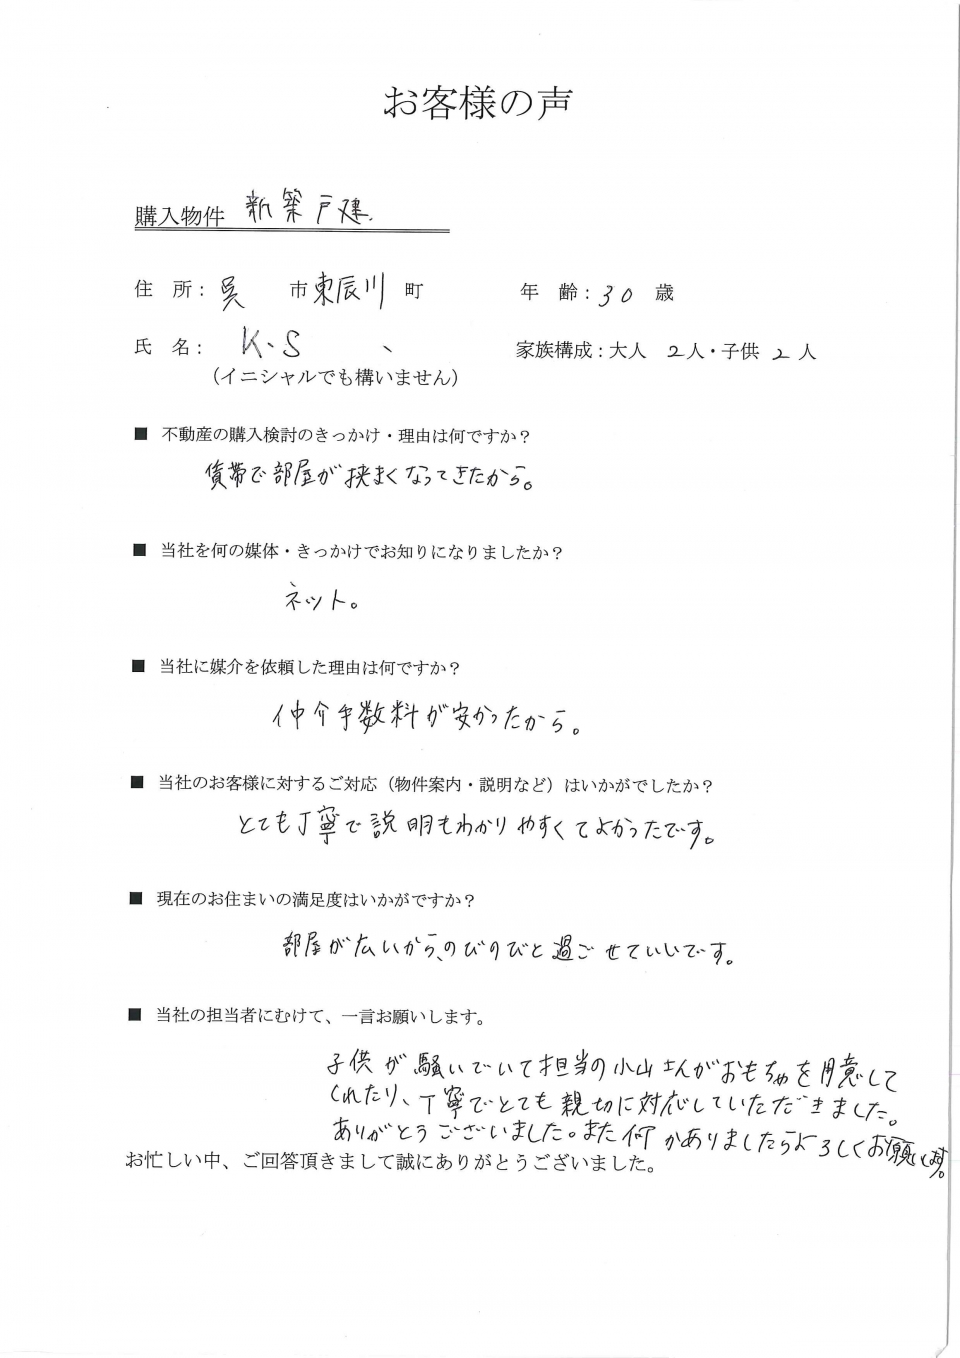 お客様の声
購入物件 新築戸建.
住 所: 呉 市 東辰川 町 年 齢: 30 歳
氏 名: K.S 、 家族構成:大人 2人・子供 2人
(イニシャルでも構いません)
■ 不動産の購入検討のきっかけ・理由は何ですか?
賃帯で部屋が挟まくなってきたから。
■ 当社を何の媒体・きっかけでお知りになりましたか?
ネット。
■ 当社に媒介を依頼した理由は何ですか?
仲介手数料が安かったから。
■ 当社のお客様に対するご対応(物件案内・説明など)はいかがでしたか?
とても丁寧で説明もわかりやすくてよかったです。
■ 現在のお住まいの満足度はいかがですか?
部屋が広いから、のびのびと過ごせていいです。
■ 当社の担当者にむけて、一言お願いします。
子供が騒いでいて担当の小山さんがおもちゃを用意して
くれたり、丁寧でとても親切に対応していただきました。
ありがとうございました。また何かありましたらよろしくお願いします。
お忙しい中、ご回答頂きまして誠にありがとうございました。